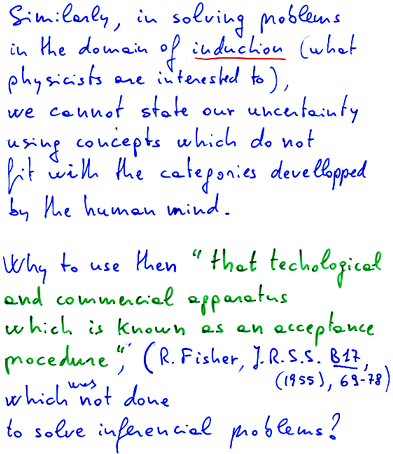 Similarly, in solving problems
in the domain of induction (what
physicists are interested to),
we cannot state our uncertainty
using concepts which do not
fit with the categories devellopped
by the human mind.
Why to use then "that techological
and commercial apparatus
which is known as an acceptance
procedure", (R. Fisher, J.R.S.S. B17,
(1955), 69-78)
which was not done
to solve inferencial problems?